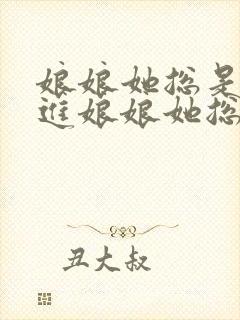 娘娘她总是
进娘娘她总
丑大叔